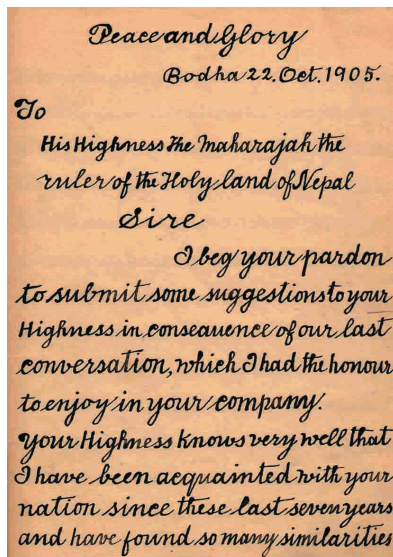 Peace and Glory
Bodha 22. Oct. 1905.
To
His Highness The Maharajah the
ruler of the Holy land of Nepal
Sire
I beg your pardon
to submit some suggestions to your
Highness in conseauence of our last
conversation, which I had the honour
to enjoy in your company.
Your Highness knows very well that
I have been acquainted with your
nation since these last seven years
and have found so many similarities